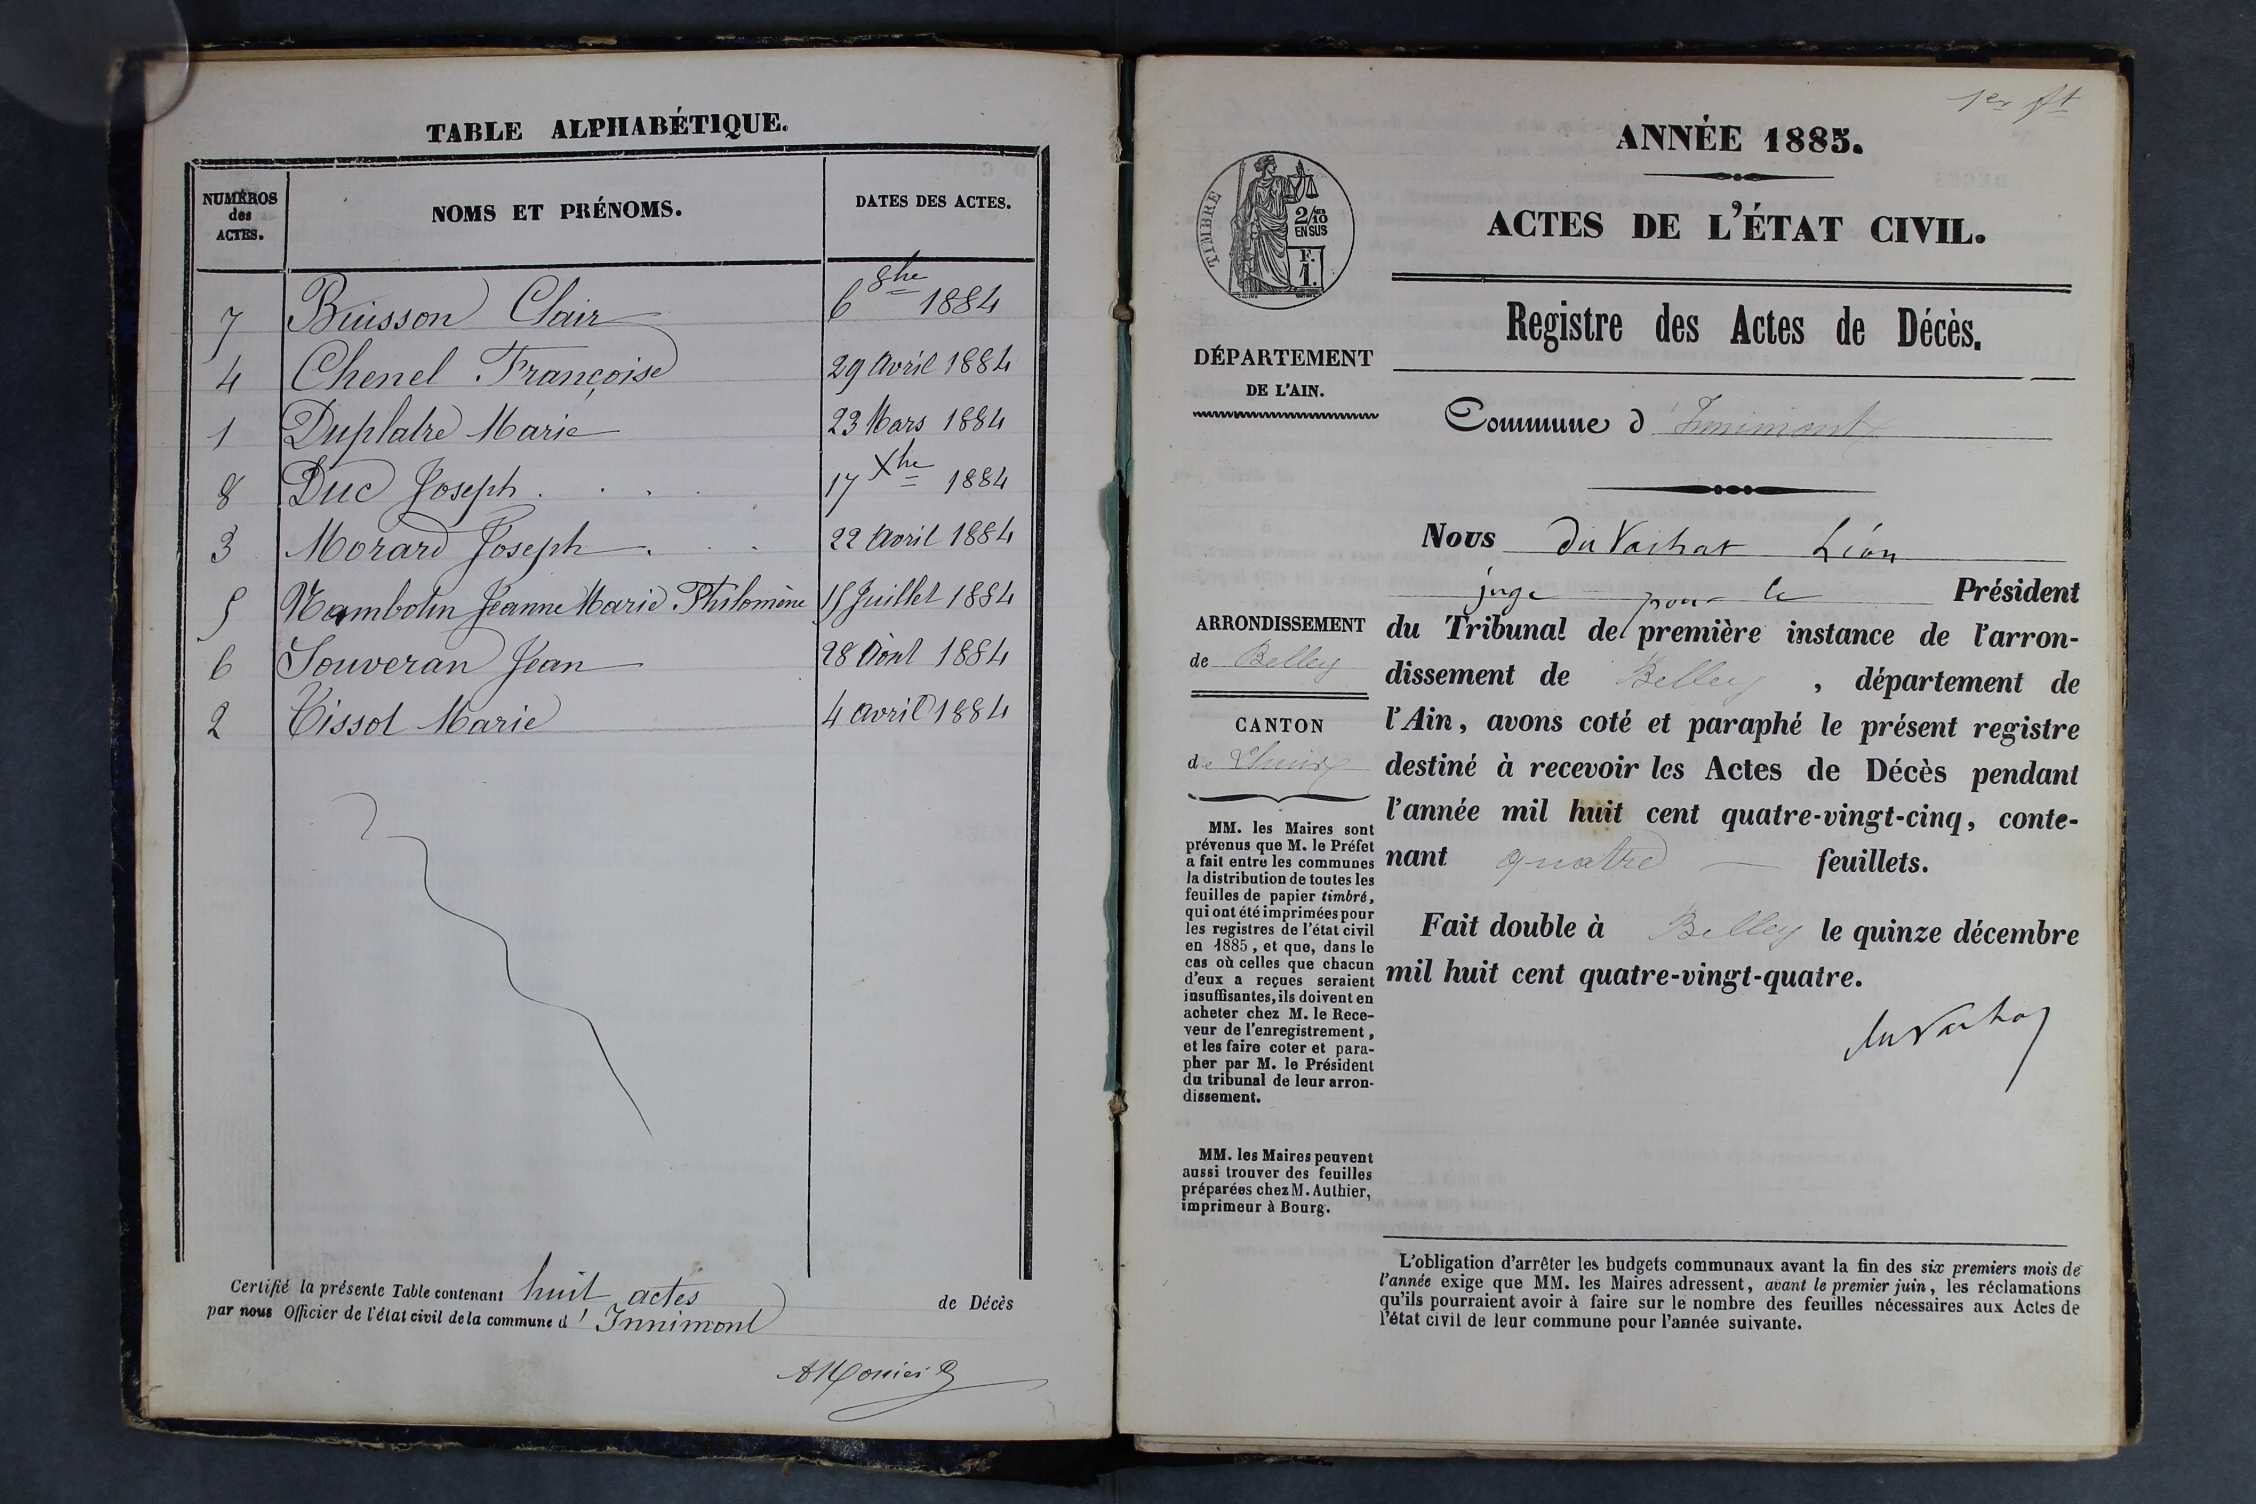 TABLE ALPHABÉTIQUE.
NUMÉROS des ACTES. NOMS ET PRÉNOMS. DATES DES ACTES.
7 Buisson Clair 6 8bre 1884
4 Chenel Françoise 29 Avril 1884
1 Duplatre Marie 23 Mars 1884
8 Duc Joseph . . . . 17 Xbre 1884
3 Morard Joseph . . . 22 Avril 1884
5 Jeanne Marie Philomène 15 Juillet 1884
6 Souveran Jean 28 Août 1884
2 Tissot Marie 4 Avril 1884
Certifié la présente Table contenant huit actes de Décès
par nous Officier de l'état civil de la commune d'Innimont
1er ft
ANNÉE 1885.
ACTES DE L'ÉTAT CIVIL.
TIMBRE
2/10 EN SUS
F. 1.
Registre des Actes de Décès.
DÉPARTEMENT
DE L'AIN.
Commune d'Innimont
Nous Du Vachat Léon
juge pour le Président
du Tribunal de première instance de l'arron-
dissement de Belley, département de
l'Ain, avons coté et paraphé le présent registre
destiné à recevoir les Actes de Décès pendant
l'année mil huit cent quatre-vingt-cinq, conte-
nant quatre feuillets.
Fait double à Belley le quinze décembre
mil huit cent quatre-vingt-quatre.
du Vachat
ARRONDISSEMENT
de Belley
CANTON
de Lhuis
MM. les Maires sont
prévenus que M. le Préfet
a fait entre les communes
la distribution de toutes les
feuilles de papier timbré,
qui ont été imprimées pour
les registres de l'état civil
en 1885, et que, dans le
cas où celles que chacun
d'eux a reçues seraient
insuffisantes, ils doivent en
acheter chez M. le Rece-
veur de l'enregistrement,
et les faire coter et para-
pher par M. le Président
du tribunal de leur arron-
dissement.
MM. les Maires peuvent
aussi trouver des feuilles
préparées chez M. Authier,
imprimeur à Bourg.
L'obligation d'arrêter les budgets communaux avant la fin des six premiers mois de
l'année exige que MM. les Maires adressent, avant le premier juin, les réclamations
qu'ils pourraient avoir à faire sur le nombre des feuilles nécessaires aux Actes de
l'état civil de leur commune pour l'année suivante.